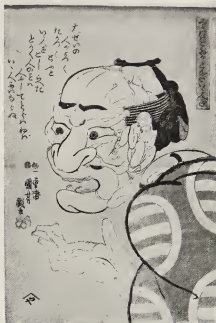 大ぜいの
人がよつて
たかつて
いゝ人をこしらへた
とかく人のことは
人にしてもらはねば
いゝ人にはならぬ
一勇斎
国芳
戯画